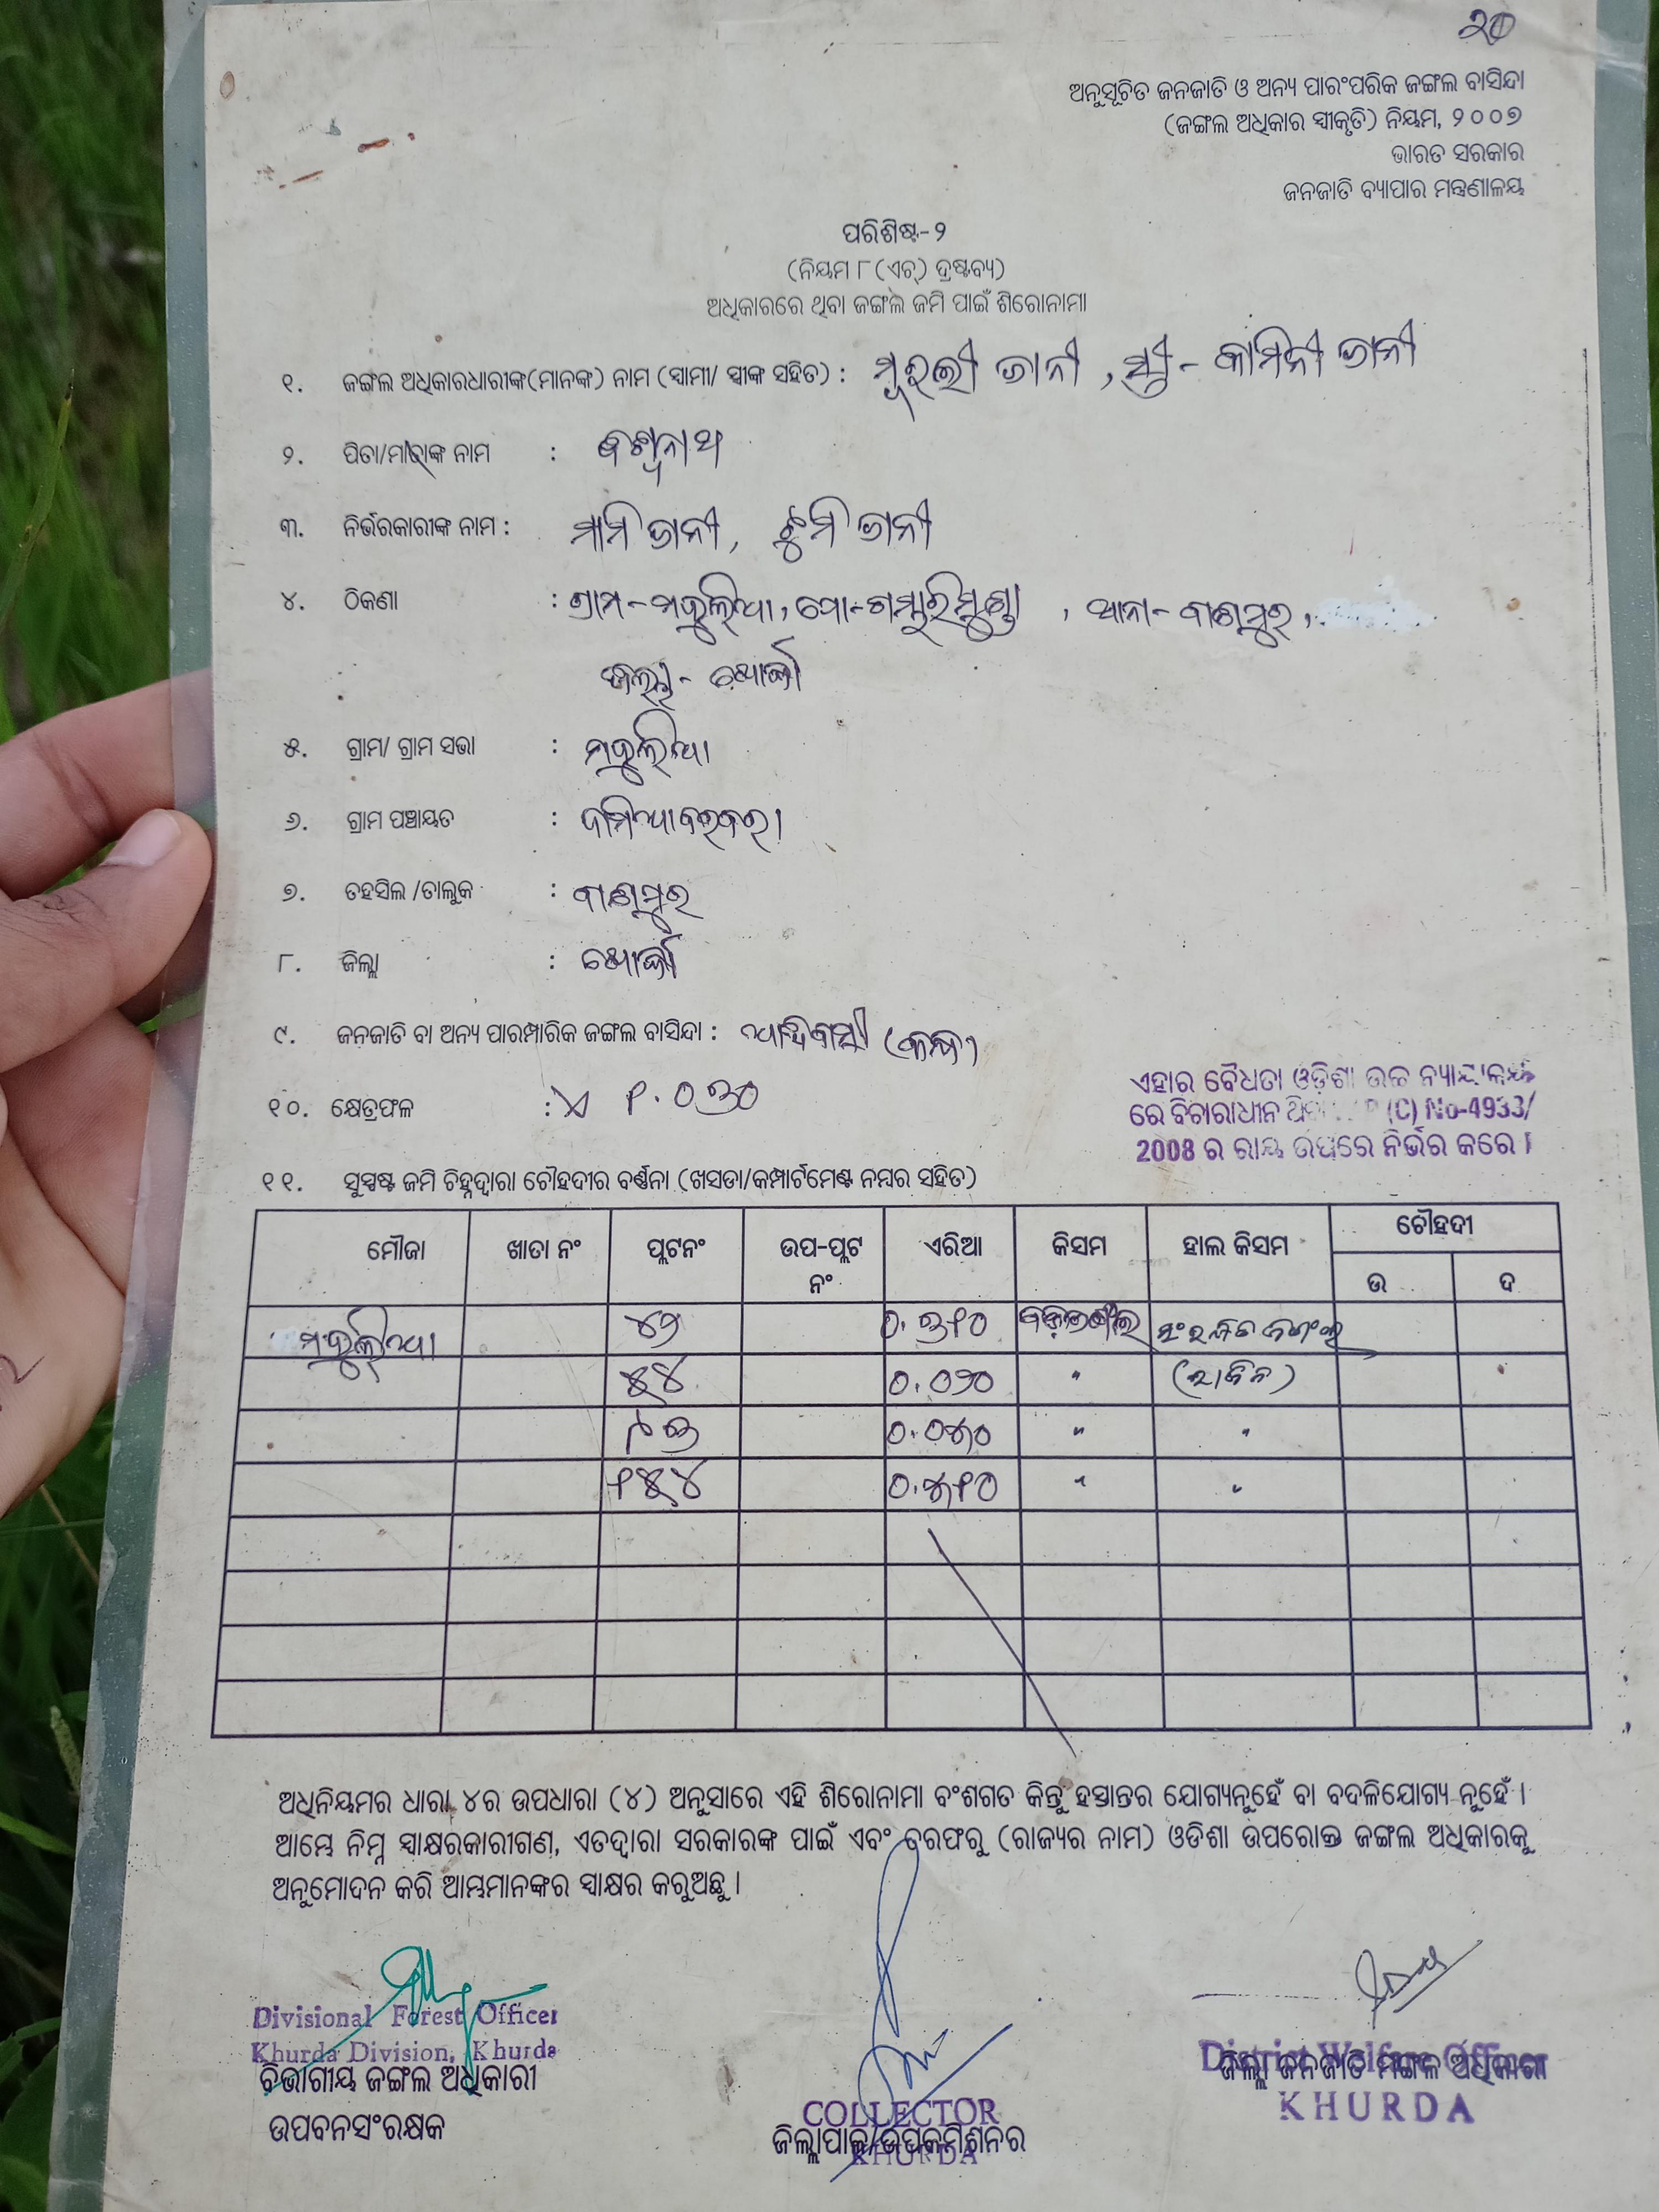 ୨୦
ଅନୁସୂଚିତ ଜନଜାତି ଓ ଅନ୍ୟ ପାରଂପରିକ ଜଙ୍ଗଲ ବାସିନ୍ଦା
(ଜଙ୍ଗଲ ଅଧିକାର ସ୍ୱୀକୃତି) ନିୟମ, ୨୦୦୭
ଭାରତ ସରକାର
ଜନଜାତି ବ୍ୟାପାର ମନ୍ତ୍ରଣାଳୟ
ପରିଶିଷ୍ଟ-୨
(ନିୟମ ୮(ଏଚ୍) ଦ୍ରଷ୍ଟବ୍ୟ)
ଅଧିକାରରେ ଥିବା ଜଙ୍ଗଲ ଜମି ପାଇଁ ଶିରୋନାମା
୧. ଜଙ୍ଗଲ ଅଧିକାରଧାରୀଙ୍କ(ମାନଙ୍କ) ନାମ (ସ୍ୱାମୀ/ ସ୍ତ୍ରୀଙ୍କ ସହିତ) : ମୂରଲୀ ଭାନୀ, ସ୍ତ୍ରୀ- କାମିନୀ ଭାନୀ
୨. ପିତା/ମାତାଙ୍କ ନାମ :
୩. ନିର୍ଭରକାରୀଙ୍କ ନାମ : ମାମି ଭାନୀ, ଟୁମି ଭାନୀ
୪. ଠିକଣା : ଗ୍ରାମ- ମହୁଲିଆ, ପୋ- ଗମ୍ଭାରିମୁଣ୍ଡା, ଥାନା- ବାଣପୁର,
ଜିଲ୍ଲା- ଖୋର୍ଦ୍ଧା
୫. ଗ୍ରାମ/ ଗ୍ରାମ ସଭା : ମହୁଲିଆ
୬. ଗ୍ରାମ ପଞ୍ଚାୟତ :
୭. ତହସିଲ /ତାଲୁକ : ବାଣପୁର
୮. ଜିଲ୍ଲା : ଖୋର୍ଦ୍ଧା
୯. ଜନଜାତି ବା ଅନ୍ୟ ପାରମ୍ପାରିକ ଜଙ୍ଗଲ ବାସିନ୍ଦା : ଆଦିବାସୀ (କନ୍ଧ)
୧୦. କ୍ଷେତ୍ରଫଳ : ଏ ୧.୦୩୦
ଏହାର ବୈଧତା ଓଡ଼ିଶା ଉଚ୍ଚ ନ୍ୟାୟାଳୟ
ରେ ବିଚାରାଧୀନ (C) No-4933/
2008 ର ରାୟ ଉପରେ ନିର୍ଭର କରେ ।
୧୧. ସୁସ୍ପଷ୍ଟ ଜମି ଚିହ୍ନଦ୍ୱାରା ଚୌହଦୀର ବର୍ଣ୍ଣନା (ଖସଡା/କମ୍ପାର୍ଟମେଣ୍ଟ ନମ୍ବର ସହିତ)
ମୌଜା ଖାତା ନଂ ପ୍ଲଟନଂ ଉପ-ପ୍ଲଟ ନଂ ଏରିଆ କିସମ ହାଲ କିସମ ଚୌହଦୀ
ଉ ଦ
ମହୁଲିଆ ୪୨ ୦.୩୧୦
୫୪ ୦.୦୨୦ "
୯୩ "
୧୫୪ "
ଅଧିନିୟମର ଧାରା ୪ର ଉପଧାରା (୪) ଅନୁସାରେ ଏହି ଶିରୋନାମା ବଂଶଗତ କିନ୍ତୁ ହସ୍ତାନ୍ତର ଯୋଗ୍ୟନୁହେଁ ବା ବଦଳିଯୋଗ୍ୟ ନୁହେଁ ।
ଆମ୍ଭେ ନିମ୍ନ ସ୍ୱାକ୍ଷରକାରୀଗଣ, ଏତଦ୍ୱାରା ସରକାରଙ୍କ ପାଇଁ ଏବଂ ତରଫରୁ (ରାଜ୍ୟର ନାମ) ଓଡିଶା ଉପରୋକ୍ତ ଜଙ୍ଗଲ ଅଧିକାରକୁ
ଅନୁମୋଦନ କରି ଆମ୍ଭମାନଙ୍କର ସ୍ୱାକ୍ଷର କରୁଅଛୁ ।
Divisional Forest Officer
Khurda Division, Khurda
ବିଭାଗୀୟ ଜଙ୍ଗଲ ଅଧିକାରୀ
ଉପବନସଂରକ୍ଷକ
COLLECTOR
ଜିଲ୍ଲାପାଳ/ଉପକମିଶନର
KHURDA
District Welfare Officer
ଜିଲ୍ଲା ଜନଜାତି ମଙ୍ଗଳ ଅଧିକାରୀ
KHURDA